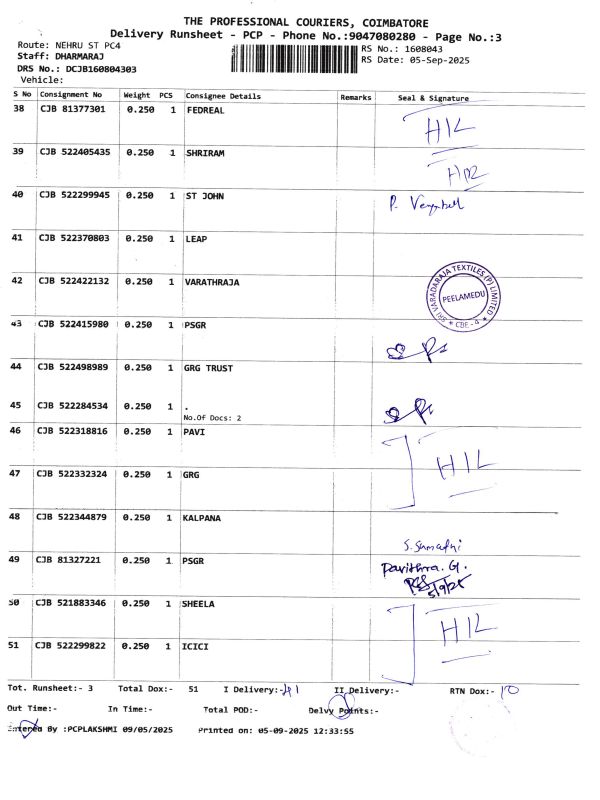 THE PROFESSIONAL COURIERS, COIMBATORE
Delivery Runsheet - PCP - Phone No.:9047080280 - Page No.:3
Route: NEHRU ST PC4 RS No.: 1608043
Staff: DHARMARAJ RS Date: 05-Sep-2025
DRS No.: DCJB160804303
Vehicle:
S No Consignment No Weight PCS Consignee Details Remarks Seal & Signature
38 CJB 81377301 0.250 1 FEDREAL
HIL
39 CJB 522405435 0.250 1 SHRIRAM
40 CJB 522299945 0.250 1 ST JOHN P.
41 CJB 522370803 0.250 1 LEAP
42 CJB 522422132 0.250 1 VARATHRAJA
SRI VARADARAJA TEXTILES (P) LIMITED
PEELAMEDU
CBE - 4
43 CJB 522415980 0.250 1 PSGR
44 CJB 522498989 0.250 1 GRG TRUST
45 CJB 522284534 0.250 1 .
No.Of Docs: 2
46 CJB 522318816 0.250 1 PAVI
HIL
47 CJB 522332324 0.250 1 GRG
48 CJB 522344879 0.250 1 KALPANA
49 CJB 81327221 0.250 1 PSGR Pavithra. G.
5/9/25
50 CJB 521883346 0.250 1 SHEELA
HIL
51 CJB 522299822 0.250 1 ICICI
Tot. Runsheet:- 3 Total Dox:- 51 I Delivery:- 41 II Delivery:- RTN Dox:- 10
Out Time:- In Time:- Total POD:- Delvy Points:-
Entered By :PCPLAKSHMI 09/05/2025 Printed on: 05-09-2025 12:33:55